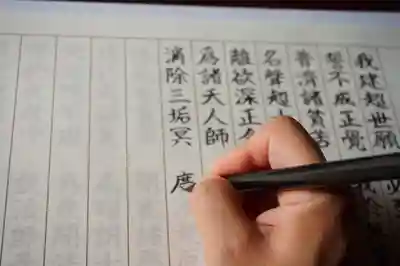 我建超世願 必
誓不成正覺
普濟諸貧苦
名聲超
離欲深正
為諸天人師
消除三垢冥